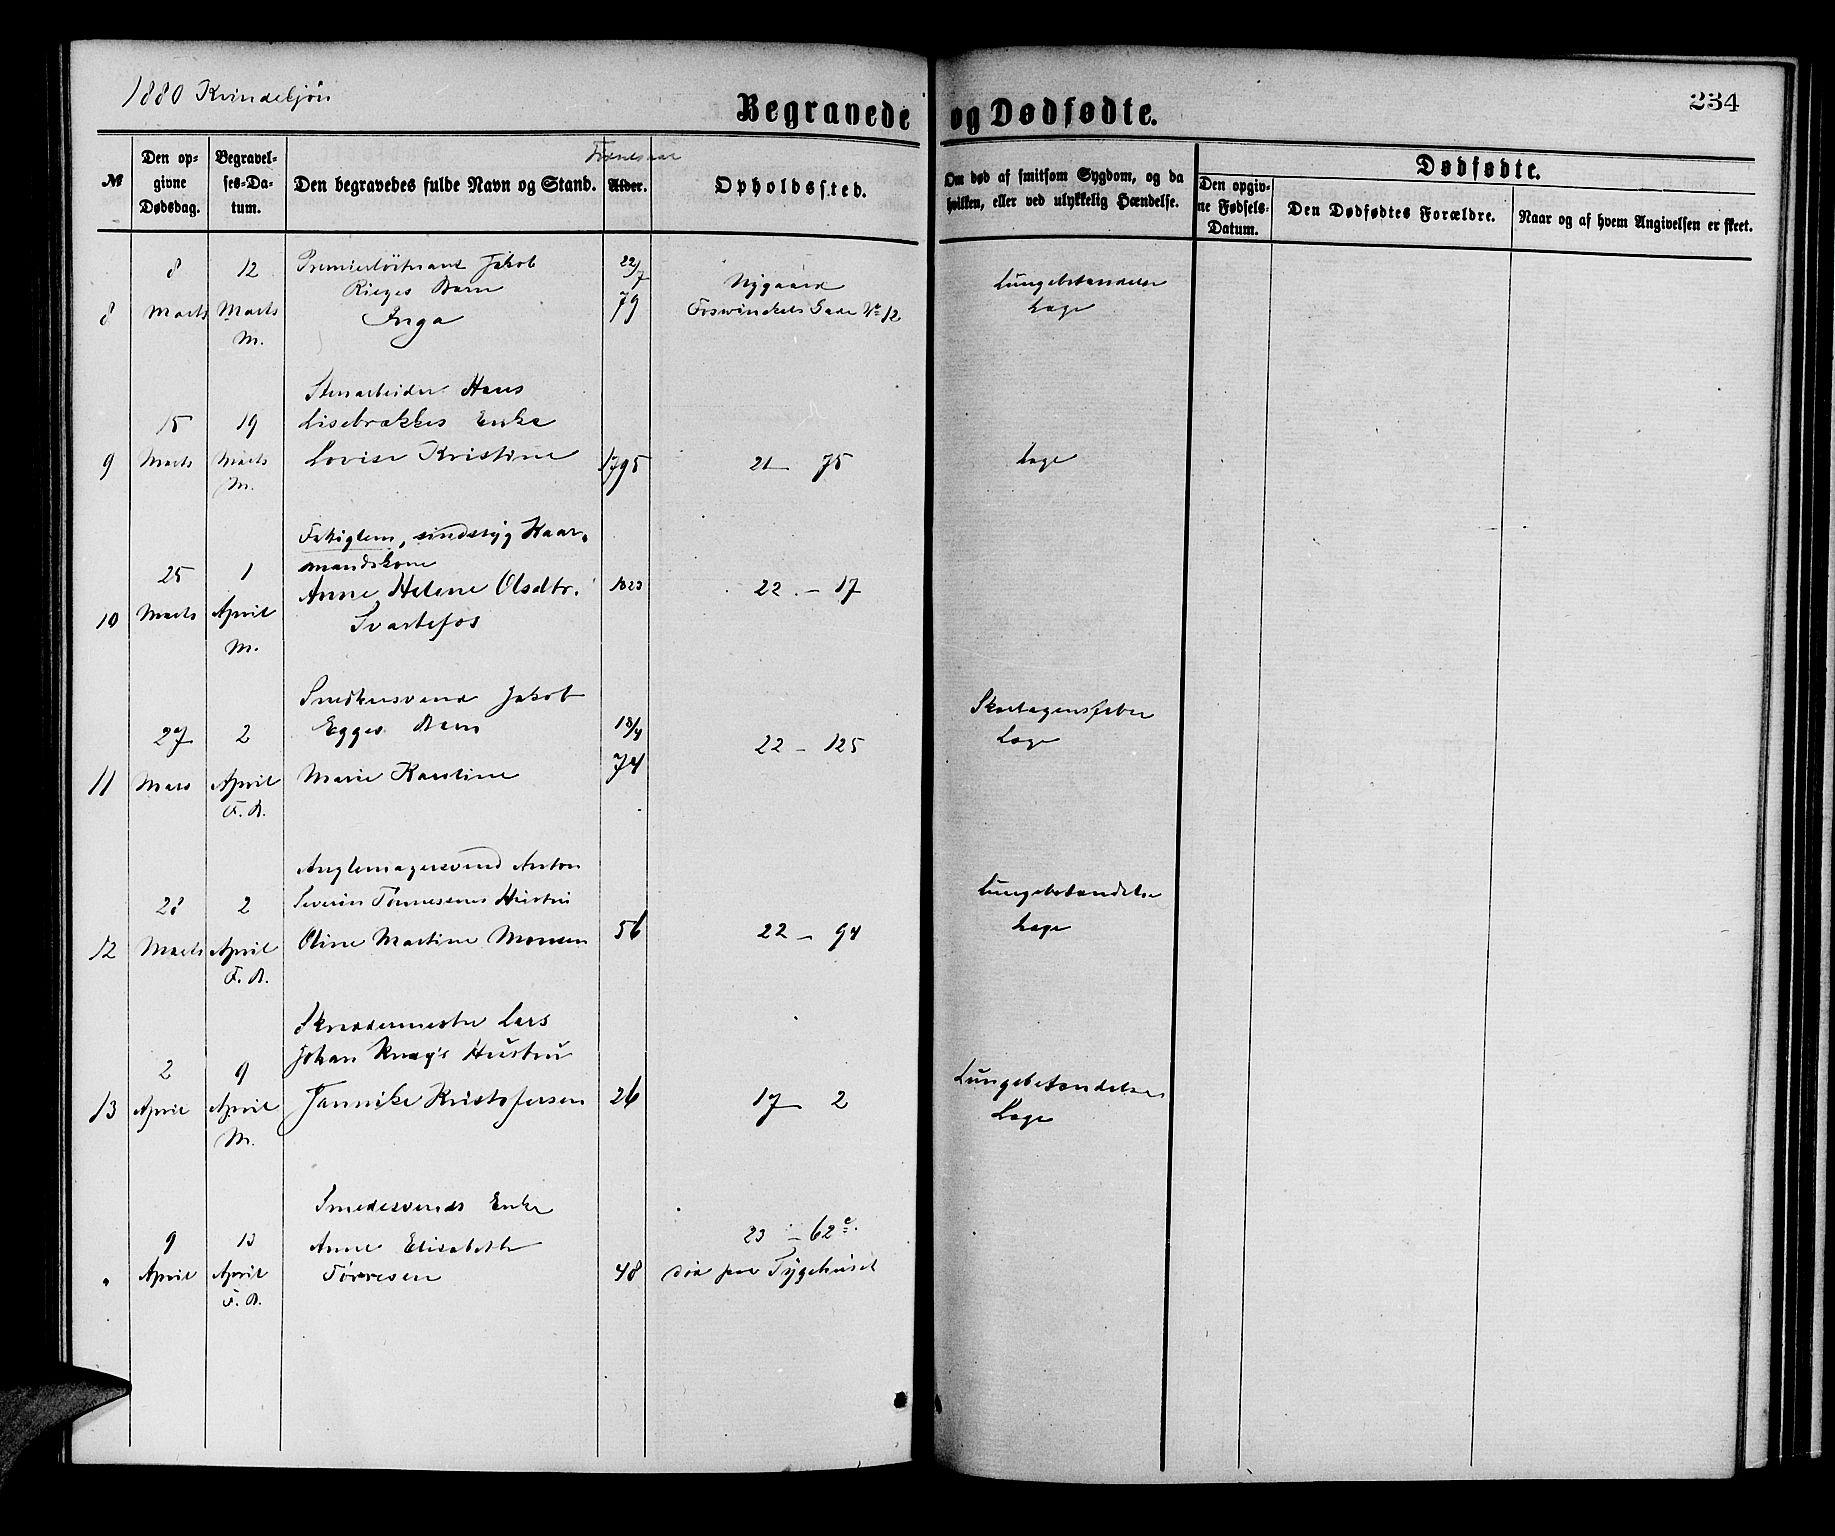 1880 Kvindekjøn
Begravede og Dødfødte.
234
№
Den opgivne Dødsdag.
Begravelses-Datum.
Den begravedes fulde Navn og Stand.
Fødselsaar
Alder.
Opholdssted.
Om død af smitsom Sygdom, og da hvilken, eller ved ulykkelig Hændelse.
Dødfødte.
Den opgivne Fødsels-Datum.
Den Dødfødtes Forældre.
Naar og af hvem Angivelsen er skeet.
8
8 Marts
12 Marts M.
Premierløitnant Jakob
Rieges Barn
Inga
22/7 79
Nygaard
Gade № 12
Lungebetændelse
Læge
9
15 Marts
19 Marts M.
Stenarbeider Hans
Lisebrækkes Enke
Lovise Kristine
1795
21 – 75
Læge
10
25 Marts
1 April M.
Fattiglem, sindssyg Haar-
mandskone
Anne Helene Olsdtr.
Svartefos
1823
22 – 17
11
27 Mars
2 April F. A.
Snedkersvend Jakob
Egges Barn
Marie Karoline
18/4 74
22 – 125
Skarlagensfeber
Læge
12
28 Marts
2 April F. A.
Severin Tønnessens Hustru
Oline Martine Monsen
56
22 – 94
Lungebetændelse
Læge
13
2 April
9 April M.
Skræddermester Lars
Johan Krag's Hustru
Jannike Kristofersen
26
17 – 2
Lungebetændelse
Læge
"
9 April
13 April F. A.
Smedesvends Enke
Anne Elisabeth
Tørresen
48
23 – 62c.
død paa Sygehuset